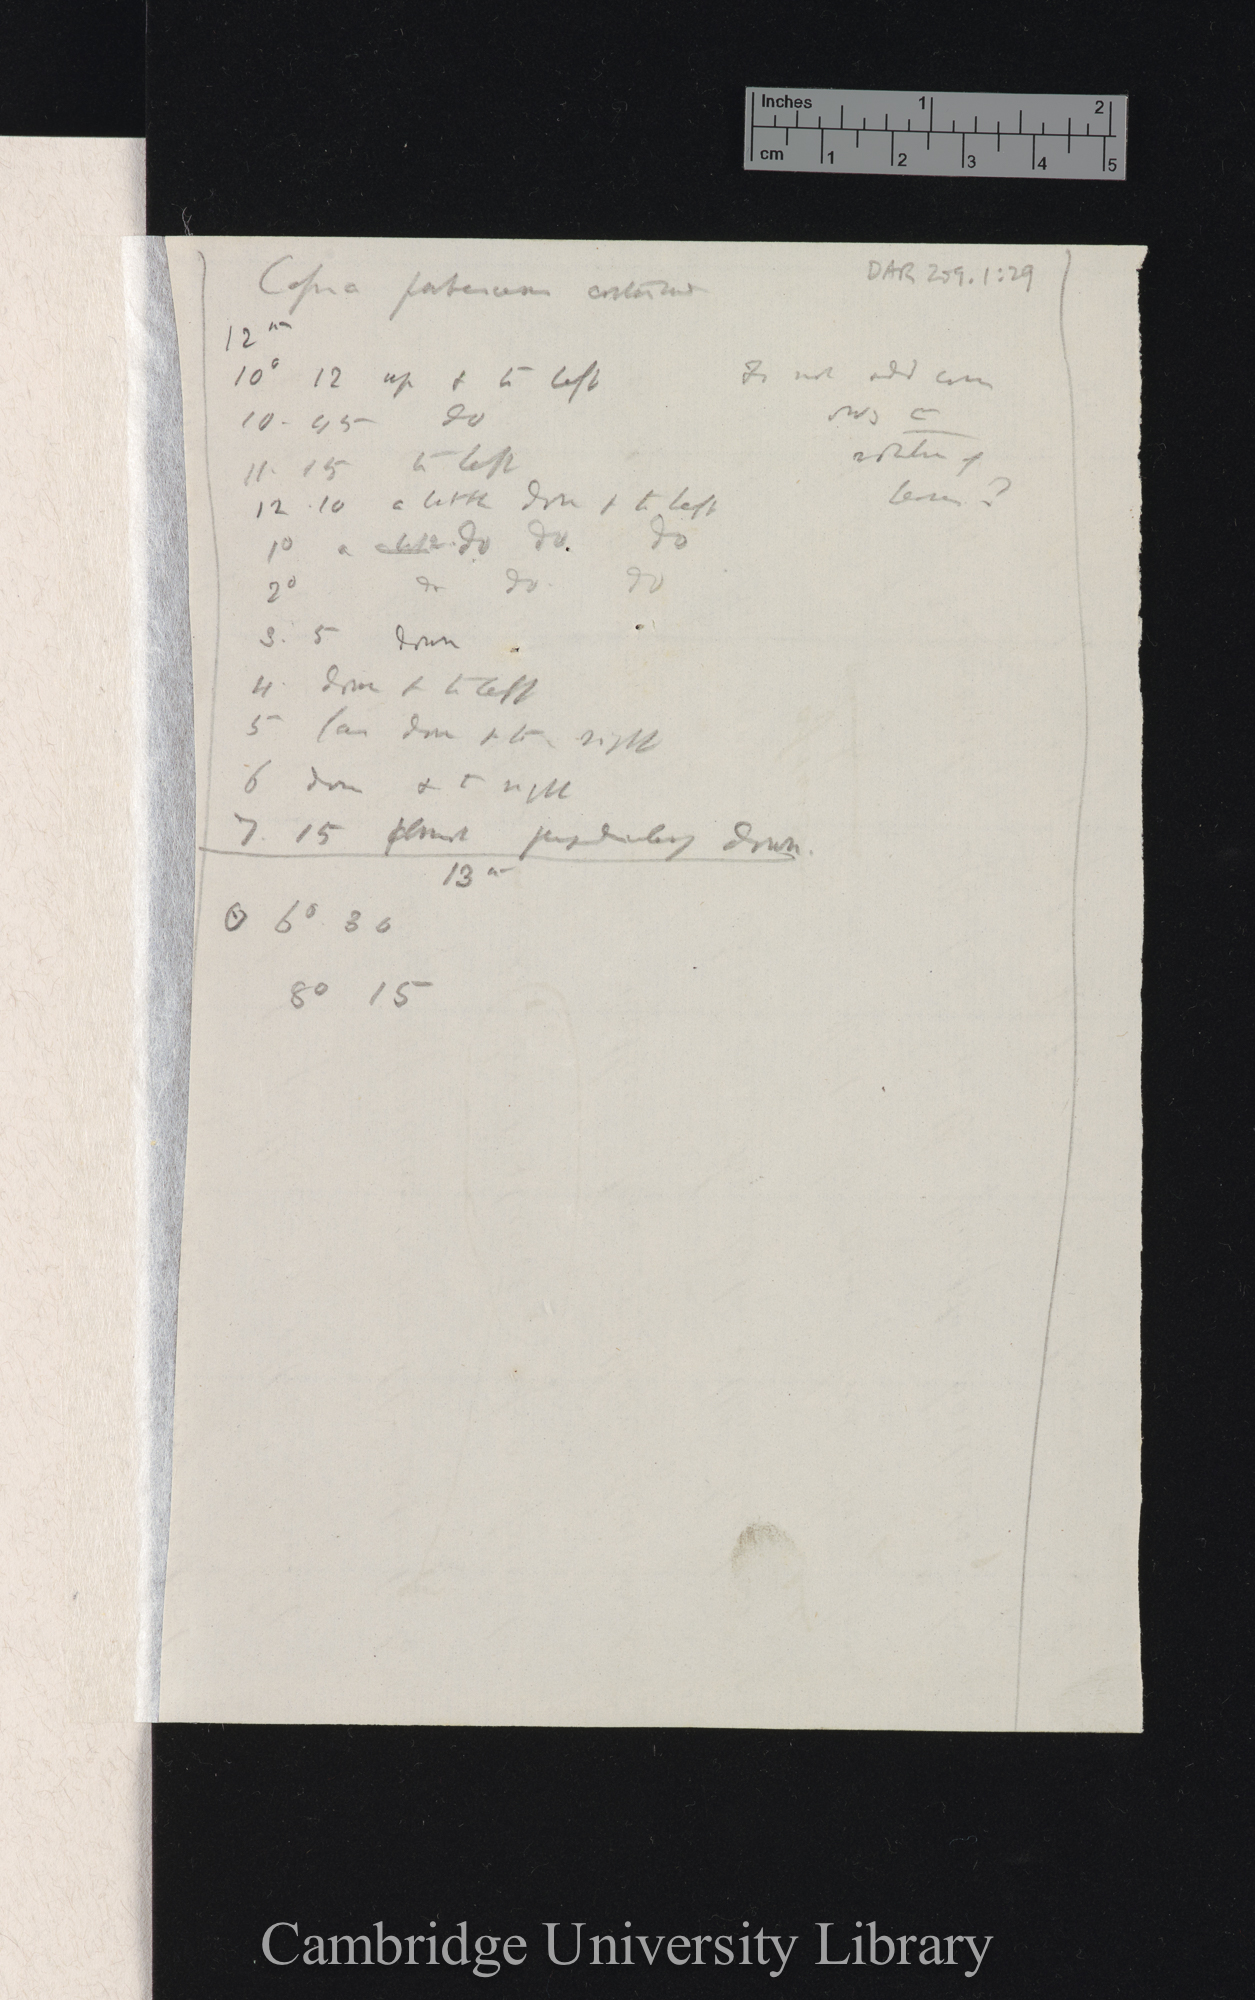 Inches 1 2
cm 1 2 3 4 5
DAR 209.1:29
Cassia pubescens continued
12th
10° 12 up & to left
10. 45 do
11. 15 to left
12. 10 a little down & to left
1° a little do do. do
2° do do. do
3. 5 down
4. down & to left
5 down & to right
6 down & to right
7. 15 almost perpendicularly down.
13th
6° 30
8° 15
Is not odd com
rotation of
leaves?
Cambridge University Library